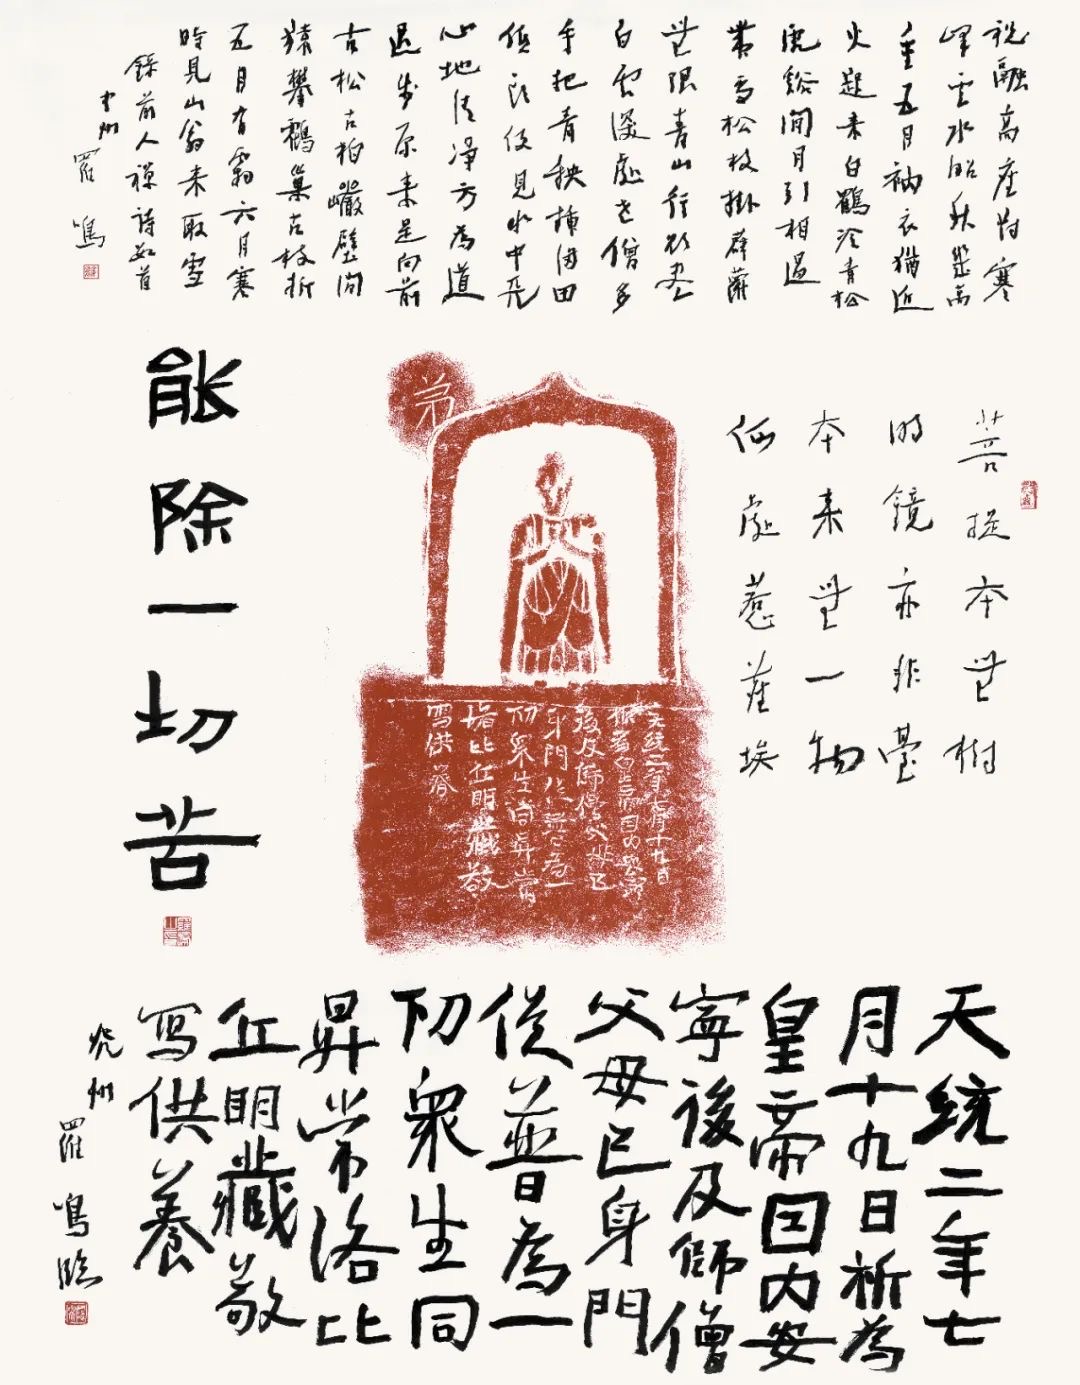 祝融高座對寒
峰雲水昭秋幾萬
重五月衲衣猶近
火起来白鶴冷青松
虎谿閒月引相過
帶雪松枝掛薜蘿
無限青山行欲盡
白雲深處老僧多
手把青秧插滿田
低頭便見水中天
心地清淨方為道
退步原来是向前
古松古柏巖壁間
猿攀鶴巢古枝折
五月有霜六月寒
時見山翁来取雪
錄前人禪詩數首
羅鳴
菩提本無樹
明鏡亦非臺
本来無一物
何處惹塵埃
弟
天統二年七月十九日
祈為皇帝囯内安寧
後及師僧父母己
身門徒普為一
切衆生同昇常
洛比丘明藏敬
寫供養
能除一切苦
天統二年七
月十九日祈為
皇帝囯内安
寧後及師僧
父母己身門
徒普為一
切衆生同
昇常洛比
丘明藏敬
寫供養
羅鳴臨